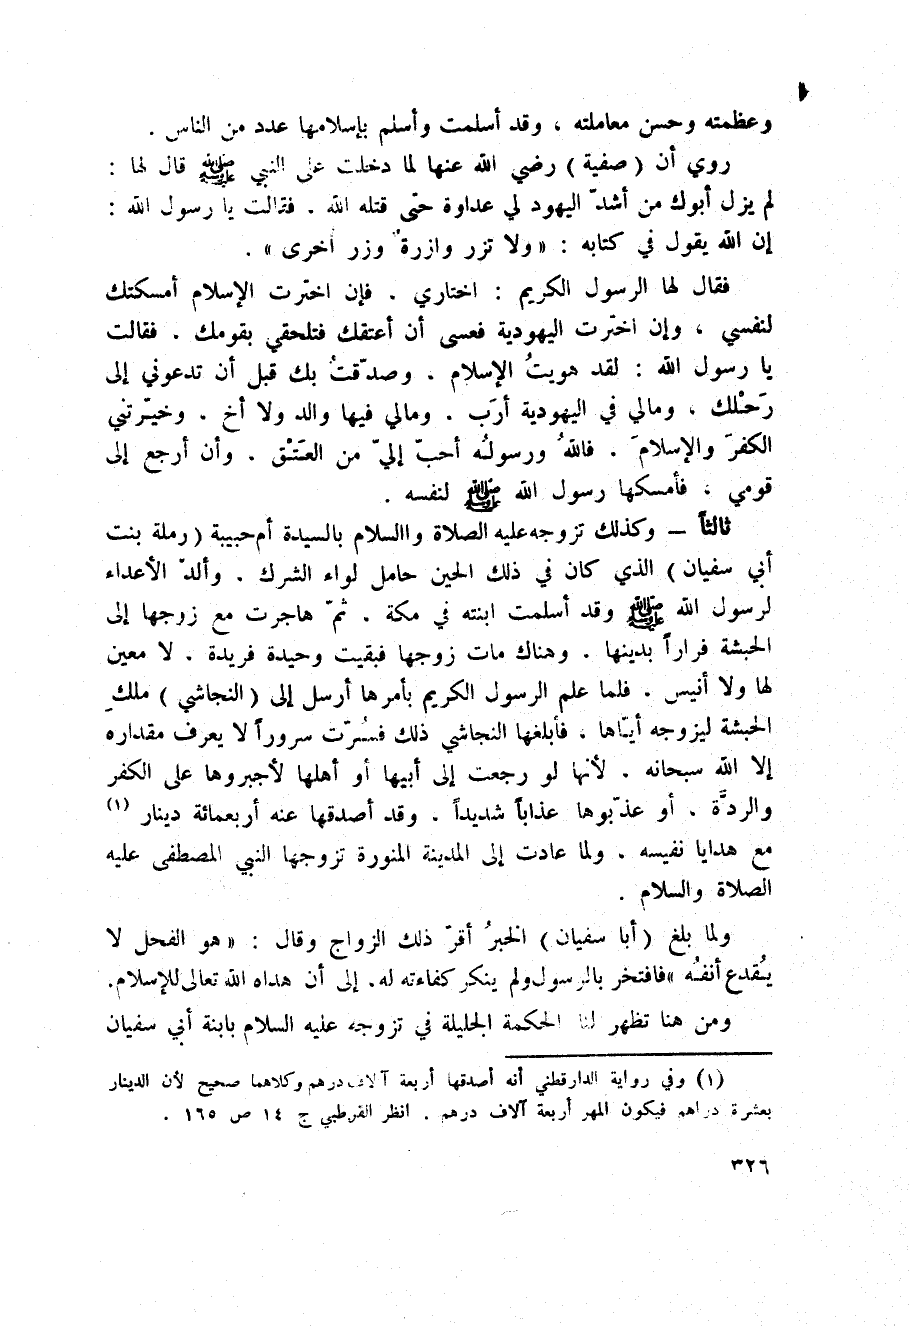 وعظمته وحسن معاملته ، وقد أسلمت وأسلم بإسلامها عدد من الناس .
روي أن ( صفية ) رضي الله عنها لما دخلت على النبي ﷺ قال لها :
لم يزل أبوك من أشدّ اليهود لي عداوة حتّى قتله الله . فقالت يا رسول الله :
إن الله يقول في كتابه : « ولا تزر وازرةٌ وزر أخرى » .
فقال لها الرسول الكريم : اختاري . فإن اخترت الإسلام أمسكتك
لنفسي ، وإن اخترت اليهودية فعسى أن أعتقك فتلحقي بقومك . فقالت
يا رسول الله : لقد هويتُ الإسلام . وصدّقتُ بك قبل أن تدعوني إلى
رَحْلك ، ومالي في اليهودية أرَب . ومالي فيها والد ولا أخ . وخيّرتني
الكفرَ والإسلامَ . فاللهُ ورسولُه أحبّ إليّ من العَتْق . وأن أرجع إلى
قومي ، فأمسكها رسول الله ﷺ لنفسه .
ثالثاً – وكذلك تزوجه عليه الصلاة واالسلام بالسيدة أم حبيبة ( رملة بنت
أبي سفيان ) الذي كان في ذلك الحين حامل لواء الشرك . وألدّ الأعداء
لرسول الله ﷺ وقد أسلمت ابنته في مكة . ثمّ هاجرت مع زوجها إلى
الحبشة فراراً بدينها . وهناك مات زوجها فبقيت وحيدة فريدة . لا معين
لها ولا أنيس . فلما علم الرسول الكريم بأمرها أرسل إلى ( النجاشي ) ملكِ
الحبشة ليزوجه أيّاها ، فأبلغها النجاشي ذلك فسُرّت سروراً لا يعرف مقداره
إلا الله سبحانه . لأنها لو رجعت إلى أبيها أو أهلها لأجبروها على الكفر
والردَّة . أو عذّبوها عذاباً شديداً . وقد أصدقها عنه أربعمائة دينار (١)
مع هدايا نفيسه . ولما عادت إلى المدينة المنورة تزوجها النبي المصطفى عليه
الصلاة والسلام .
ولما بلغ ( أبا سفيان ) الخبرُ أقرّ ذلك الزواج وقال : « هو الفحل لا
يُقدع أنفُه » فافتخر بالرسول ولم ينكر كفاءته له. إلى أن هداه الله تعالى للإسلام.
ومن هنا تظهر لنا الحكمة الجليلة في تزوجه عليه السلام بابنة أبي سفيان
(١) وفي رواية الدارقطني أنه أصدقها أربعة آلاف درهم وكلاهما صحيح لأن الدينار
بعشرة دراهم فيكون المهر أربعة آلاف درهم . انظر القرطبي ج ١٤ ص ١٦٥ .
٣٢٦